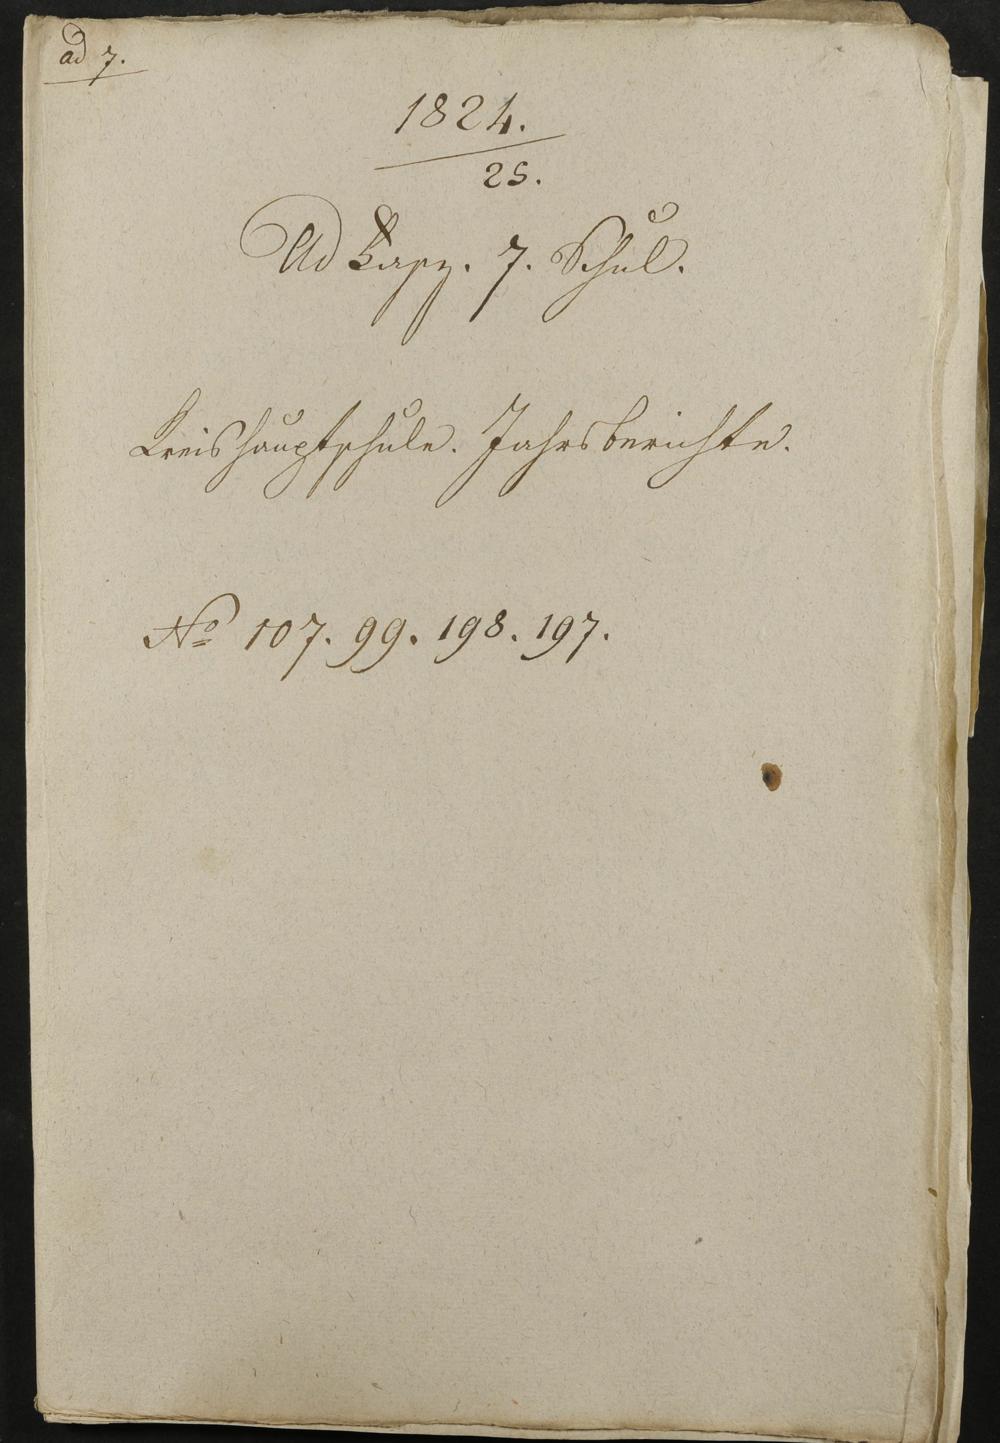 ad 7.
1824.
25.
Ad Fasz. 7. Schul.
Kreishauptschule. Jahrsberichte.
No 107. 99. 198. 197.